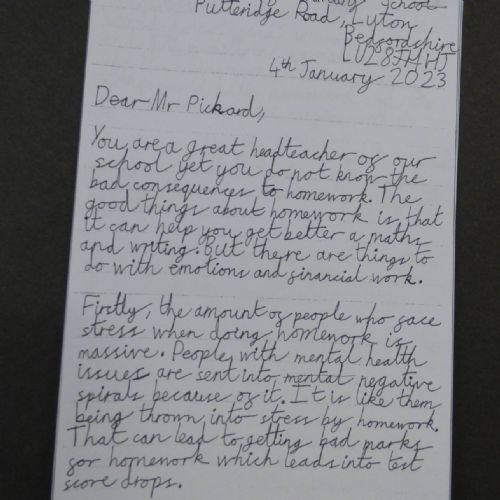 School
Putteridge Road, Luton
Bedfordshire
LU28
4th January 2023
Dear Mr Pickard,
You are a great headteacher of our
school yet you do not know the
bad consequences to homework. The
good things about homework is that
it can help you get better a maths
and writing. But there are things to
do with emotions and financial work.
Firstly, the amount of people who face
stress when doing homework is
massive. People with mental health
issues are sent into mental negative
spirals because of it. It is like them
being thrown into stress by homework.
That can lead to getting bad marks
for homework which leads into test
score drops.